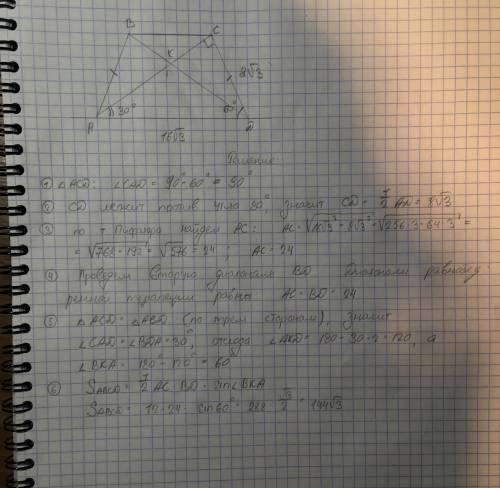 B C
K
8√3
A 30° 60° D
16√3
Решение:
① △ACD: ∠CAD = 90° - 60° = 30°
② CD лежит против угла 30°, значит CD = 1/2 AD = 8√3
③ по т Пифагора найдем AC: AC =
= √768 - 192 = √576 = 24 ; AC = 24
④ Проведем вторую диагональ BD Диагонали равнобед
ренной трапеции равны AC = BD = 24
⑤ △ACD = △ABD (по трем сторонам), значит
∠CAD = ∠BDA = 30°, откуда ∠AKD = 180 - 30 · 2 = 120, а
∠BKA = 180° - 120° = 60°
⑥ SABCD = 1/2 AC · BD · sin∠BKA
SABCD = 12 · 24 · sin60° = 288 · √3/2 = 144√3